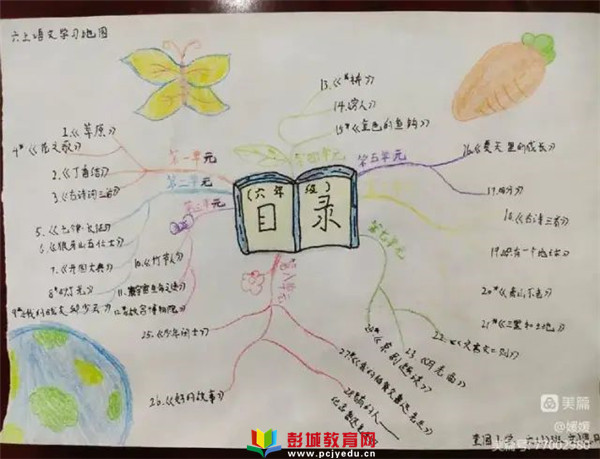 六上语文学习地图
1.《草原》
4*《花之歌》
2.《丁香结》
3.《古诗词三首》
5.《七律·长征》
6.《狼牙山五壮士》
7.《开国大典》
8*《灯光》
10.《竹节人》
11.《宇宙生命之谜》
12.《故宫博物院》
25.《少年闰土》
26.《好的故事》
13.《*桥》
14.《穷人》
15*《金色的鱼钩》
第一单元
第二单元
第三单元
第四单元
第五单元
第七单元
第八单元
(六年级)
目录
16.《夏天里的成长》
17.《盼》
18.《古诗三首》
19.《只有一个地球》
20*《青山不老》
21*《三黑和土地》
22.《文言文二则》
23.《月光曲》
24*《京剧趣谈》
美篇
@媛媛
彭城教育网
www.pcjyedu.cn